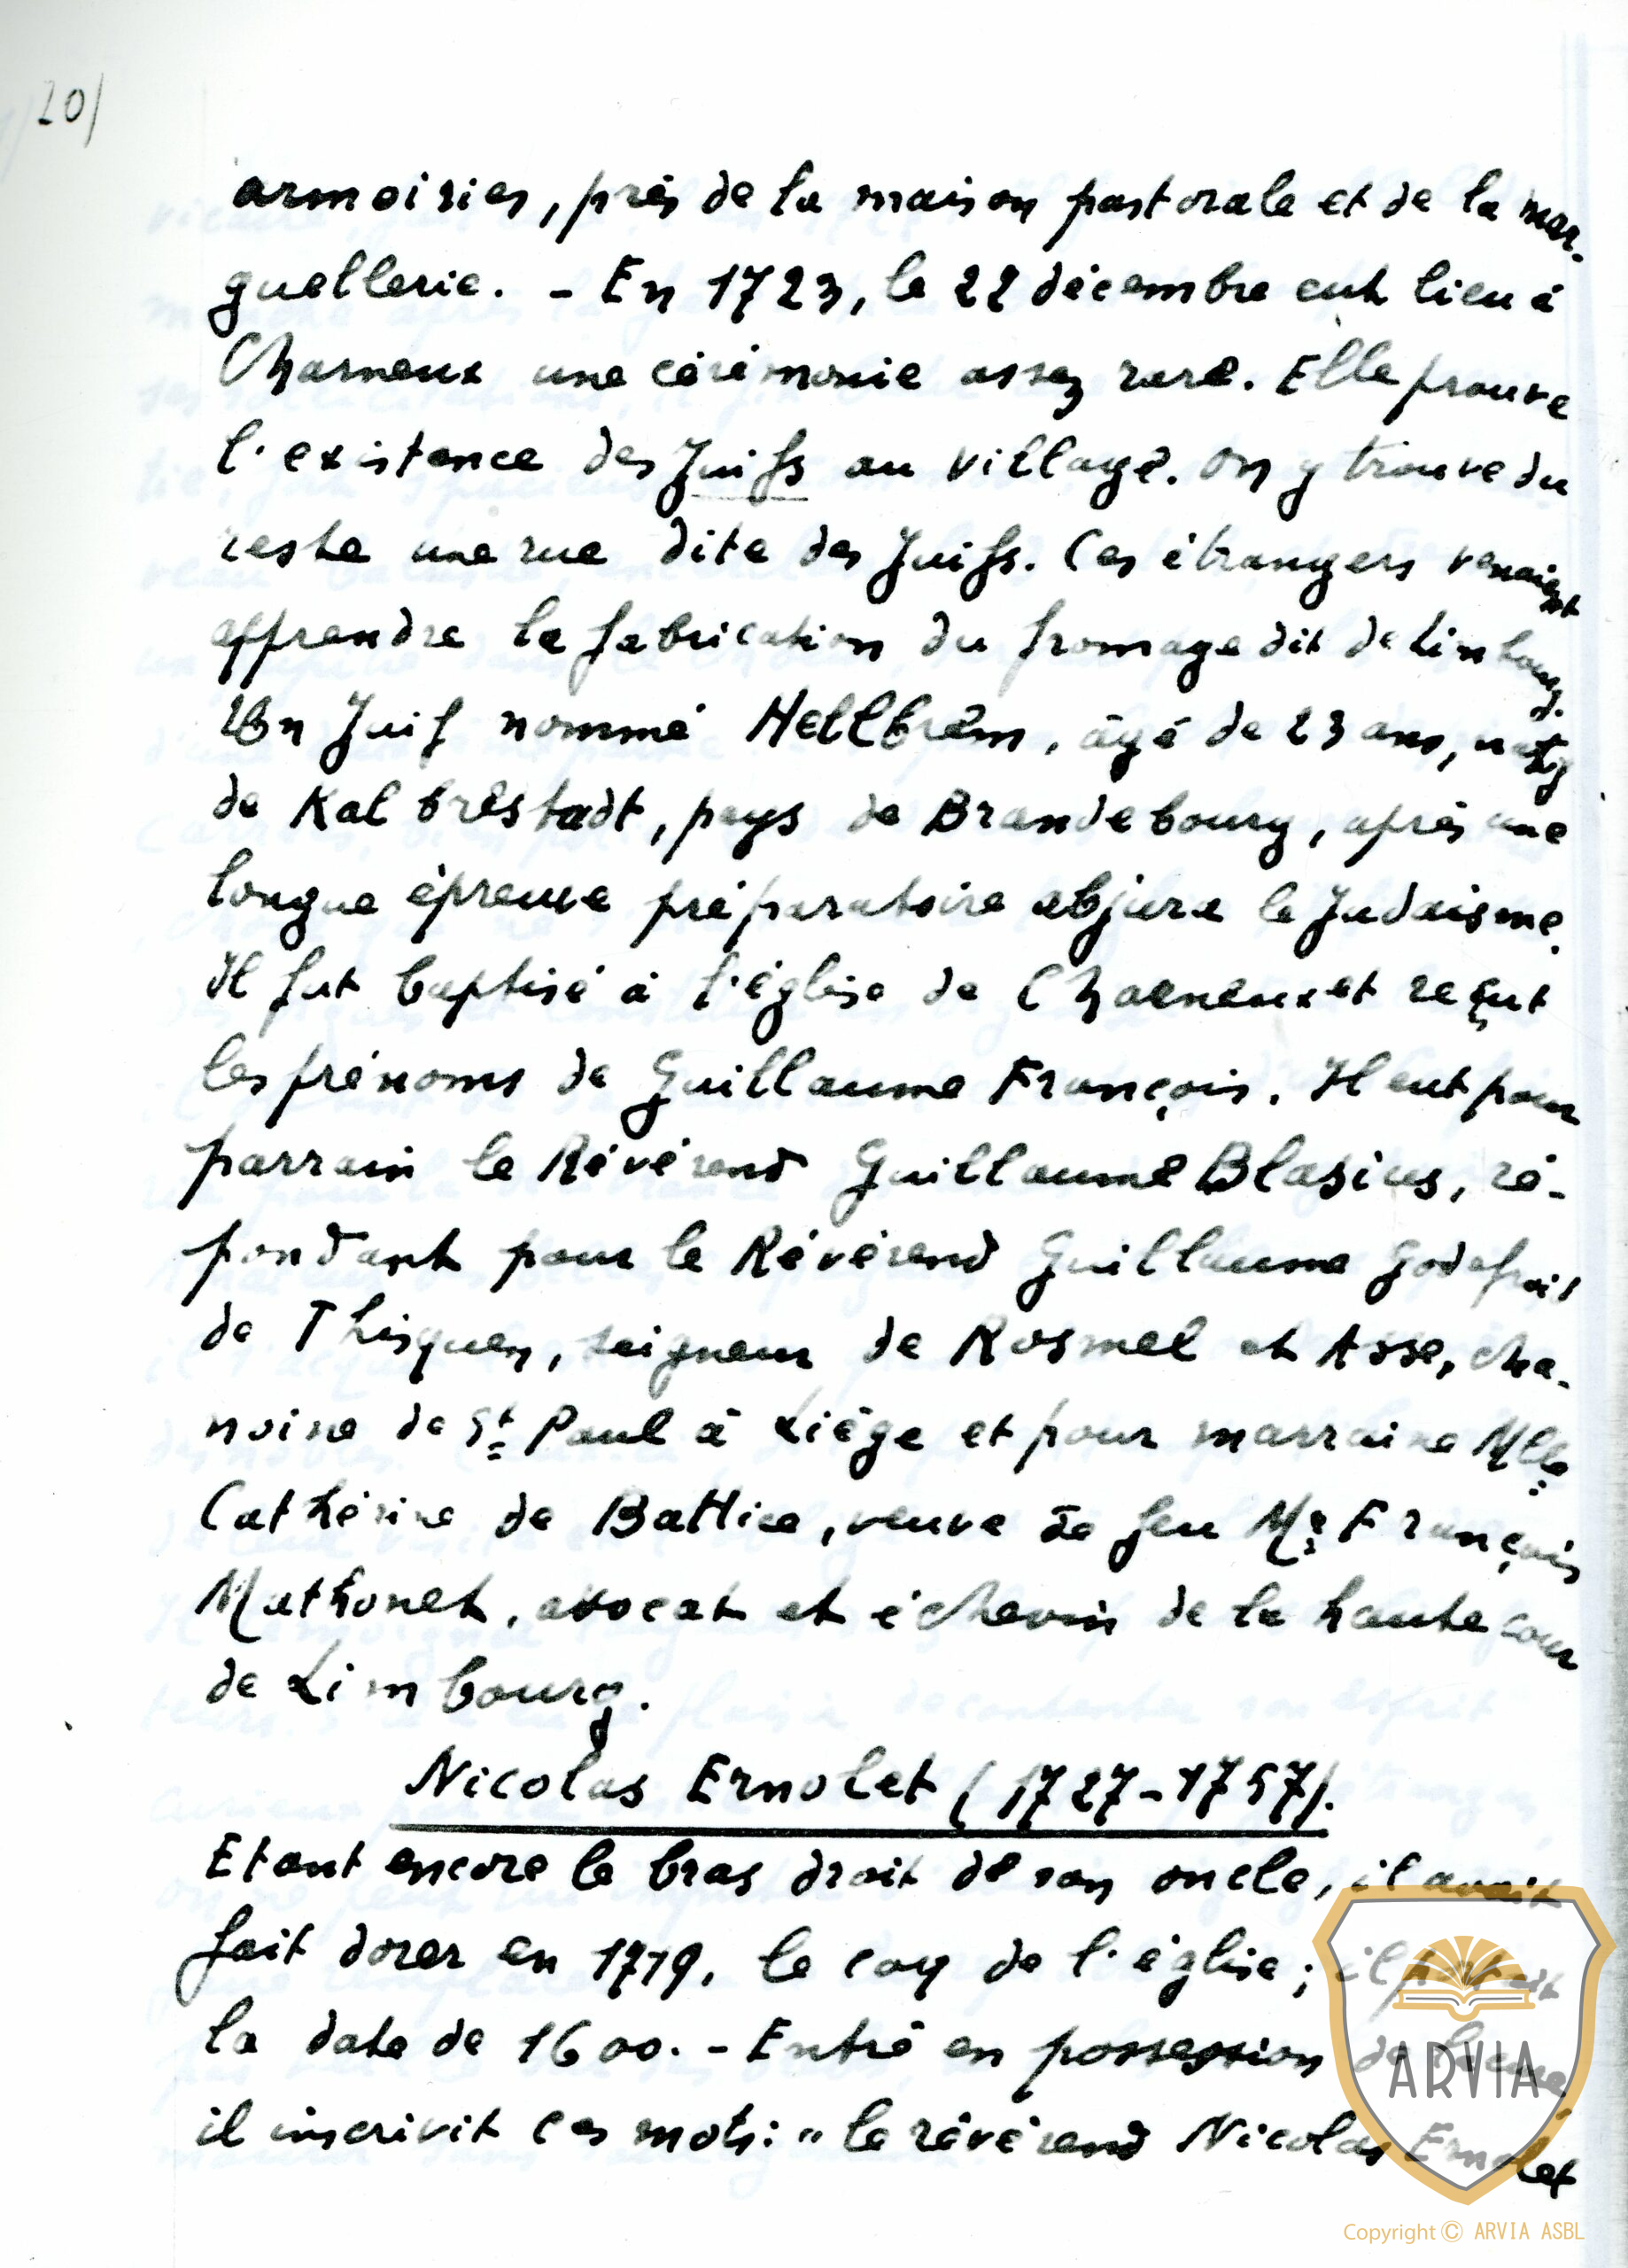 20/
armoiries, près de la maison pastorale et de la mar-
guellerie. - En 1723, le 22 décembre eut lieu à
Charneux une cérémonie assez rare. Elle prouve
l'existence des Juifs au village. On y trouve du
reste une rue dite des Juifs. Ces étrangers venaient
apprendre la fabrication du fromage dit de Limbourg.
Un Juif nommé Hellbrêm, âgé de 23 ans, natif
de Kalbrêstadt, pays de Brandebourg, après une
longue épreuve préparatoire abjura le Judaisme.
Il fut baptisé à l'église de Charneux et reçut
les prénoms de Guillaume François. Il eut pour
parrain le Révérend Guillaume Blasius, ré-
pondant pour le Révérend Guillaume Godefroid
de Thisquen, seigneur de Rosmel et Asse, cha-
noine de St Paul à Liège et pour marraine Mlle
Cathérine de Battice, veuve de feu Mr François
Mathonet, avocat et échevin de la haute cour
de Limbourg.
Nicolas Ernolet (1727-1757).
Etant encore le bras droit de son oncle, il avait
fait dorer en 1719, le coq de l'église; il portait
la date de 1600. - Entré en possession de la cure,
il inscrivit ces mots: " le révérend Nicolas Ernolet
ARVIA
Copyright © ARVIA ASBL